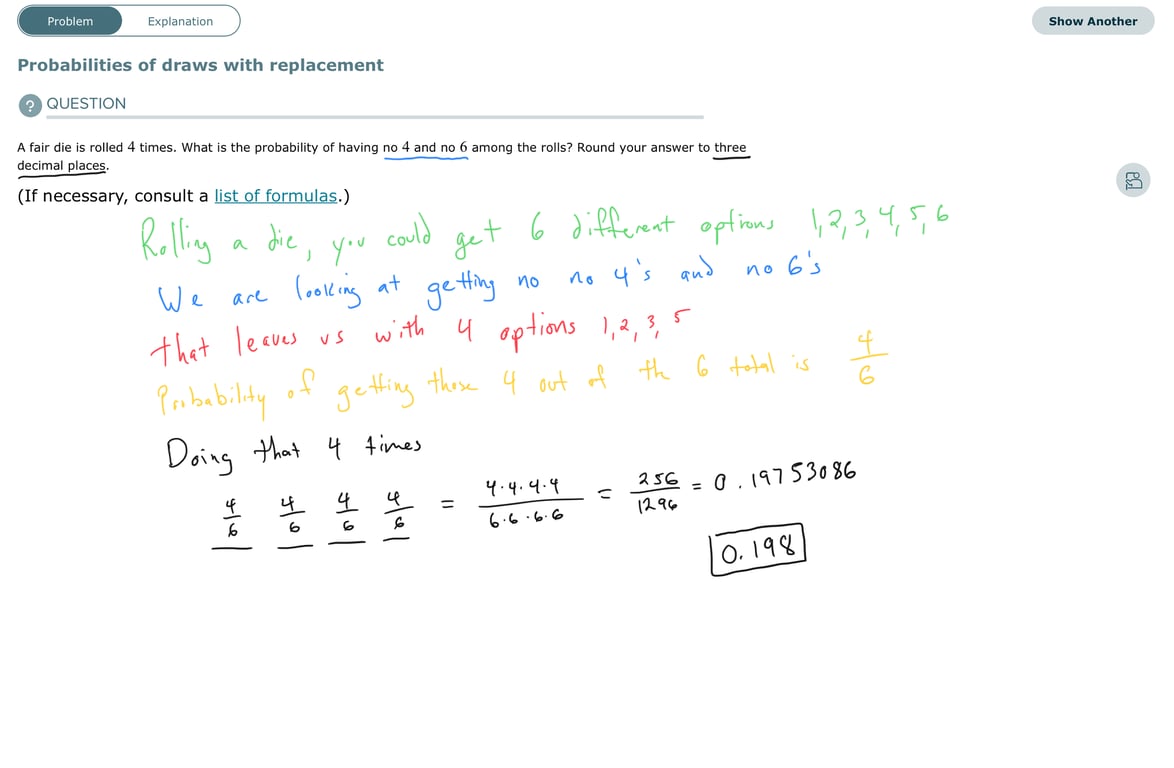 Problem Explanation Show Another
Probabilities of draws with replacement
? QUESTION
A fair die is rolled 4 times. What is the probability of having no 4 and no 6 among the rolls? Round your answer to three
decimal places.
(If necessary, consult a list of formulas.)
Rolling a die, you could get 6 different options 1,2,3,4,5,6
We are looking at getting no no 4's and no 6's
that leaves us with 4 options 1,2,3,5
Probability of getting those 4 out of th 6 total is 4/6
Doing that 4 times
4/6 4/6 4/6 4/6 = 4·4·4·4/6·6·6·6 = 256/1296 = 0.19753086
0.198